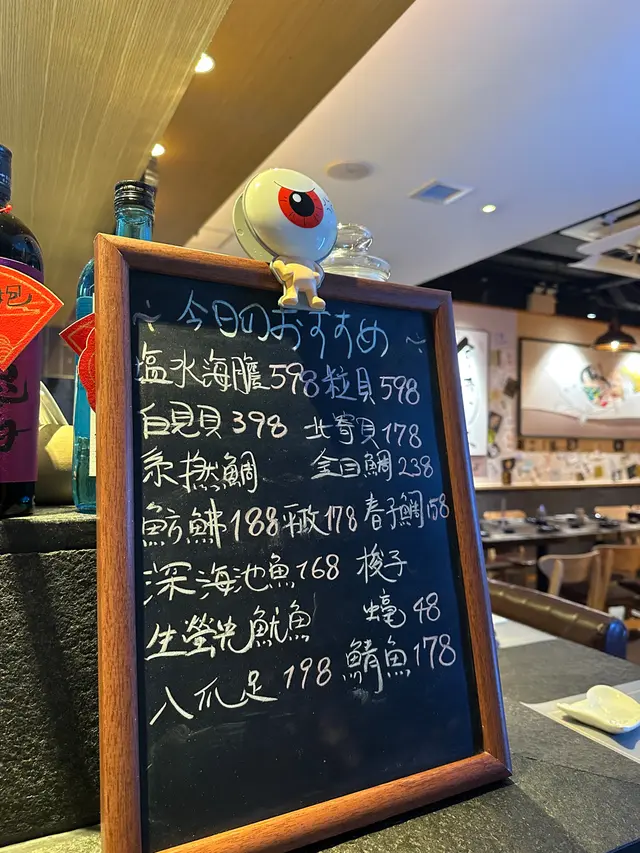 ~ 今日のおすすめ ~
塩水海膽598 粒貝598
白見貝398 北寄貝178
糸撚鯛 金目鯛238
魴鮄188 平政178 春子鯛158
深海池魚168 梭子
生螢光魷魚 蠔48
八爪足198 鯖魚178